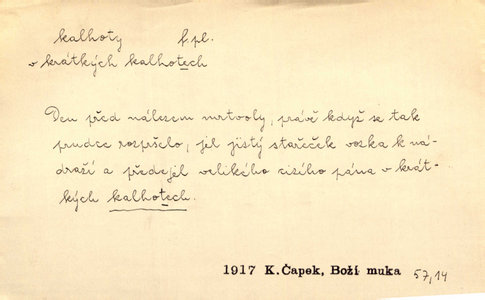 kalhoty f. pl.
v krátkých kalhotech
Den před nálezem mrtvoly, právě když se tak
prudce rozpršelo, jel jistý stařeček vozka k ná-
draží a předejel velikého cizího pána v krát-
kých kalhotech.
1917 K.Čapek, Boží muka 57,14